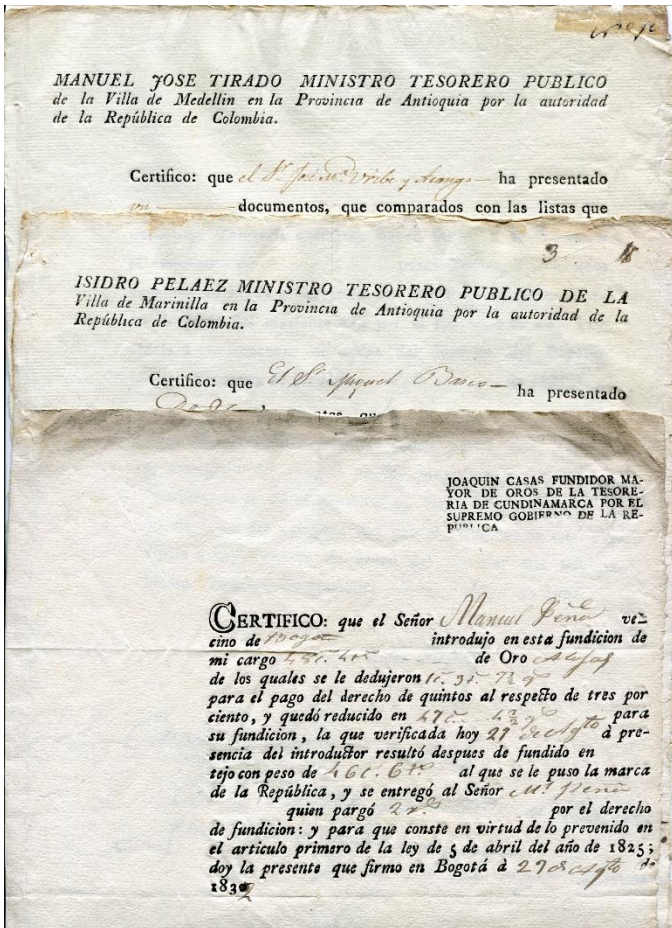 MANUEL JOSE TIRADO MINISTRO TESORERO PUBLICO
de la Villa de Medellin en la Provincia de Antioquia por la autoridad
de la República de Colombia.
Certifico: que el Sr. José Ma. Uribe y Arango ha presentado
un documentos, que comparados con las listas que
3
ISIDRO PELAEZ MINISTRO TESORERO PUBLICO DE LA
Villa de Marinilla en la Provincia de Antioquia por la autoridad de la
República de Colombia.
Certifico: que El Sr. Miguel ha presentado
JOAQUIN CASAS FUNDIDOR MA-
YOR DE OROS DE LA TESORE-
RIA DE CUNDINAMARCA POR EL
SUPREMO GOBIERNO DE LA RE-
PUBLICA
CERTIFICO: que el Señor Manuel Peña ve-
cino de Bogotá introdujo en esta fundicion de
mi cargo de Oro
de los quales se le dedujeron
para el pago del derecho de quintos al respecto de tres por
ciento, y quedó reducido en para
su fundicion, la que verificada hoy 27 de Agto à pre-
sencia del introductor resultó despues de fundido en
tejo con peso de al que se le puso la marca
de la República, y se entregó al Señor Ml. Peña
quien pargó 2 rs. por el derecho
de fundicion: y para que conste en virtud de lo prevenido en
el articulo primero de la ley de 5 de abril del año de 1825;
doy la presente que firmo en Bogotá à 27 de Agto de
1832